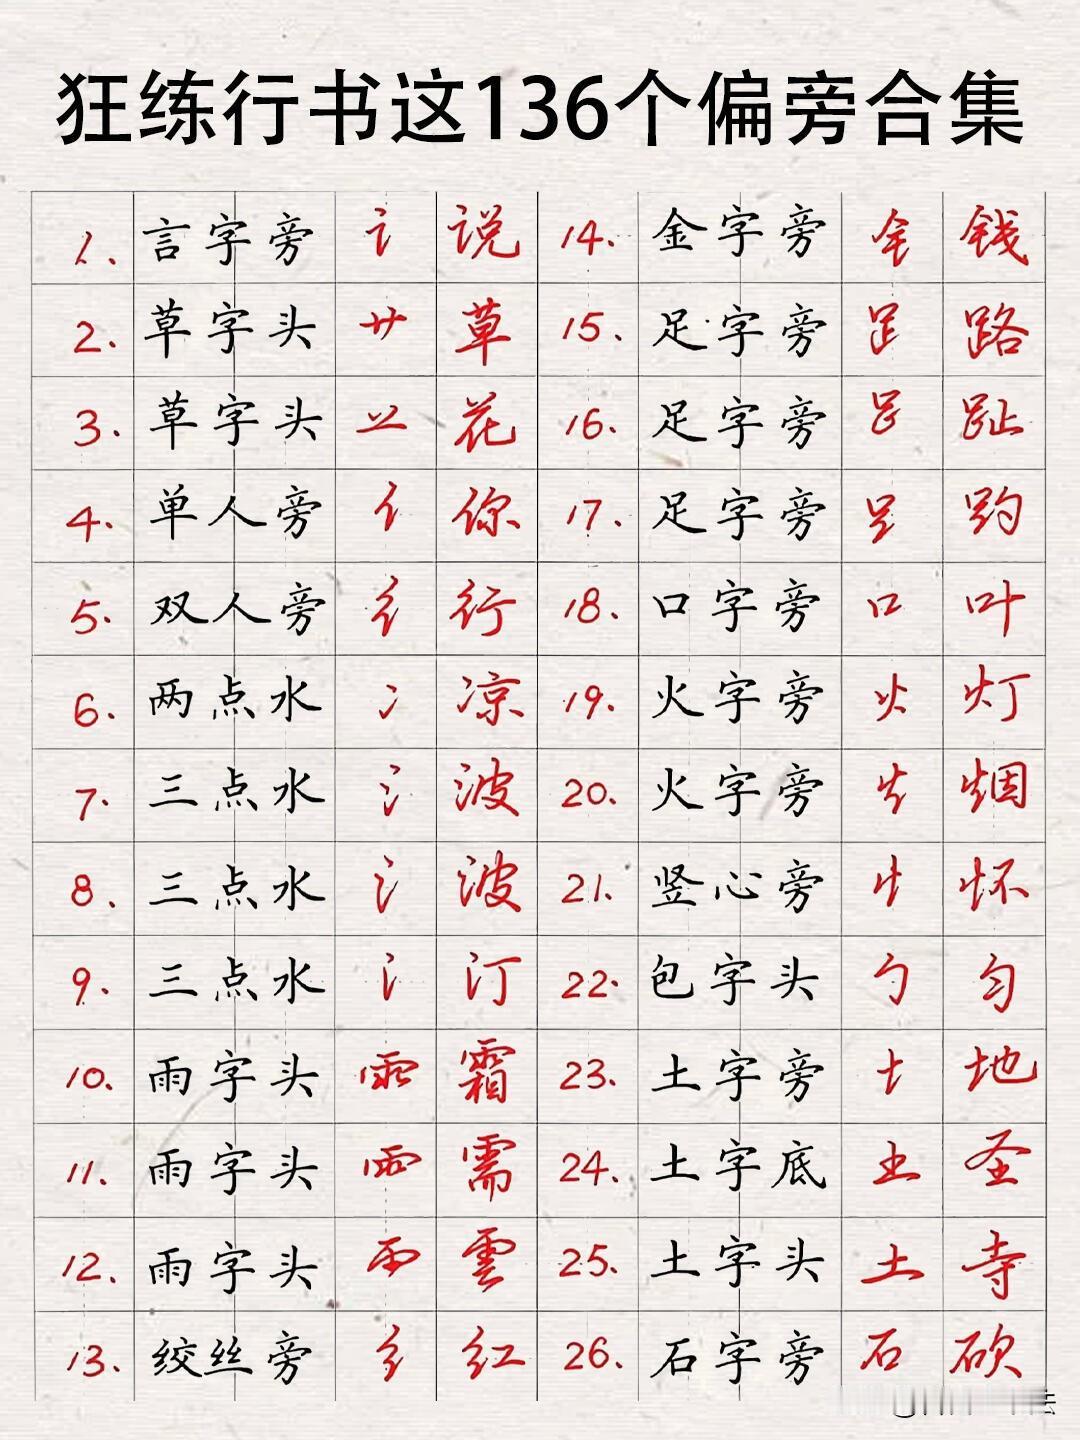 狂练行书这136个偏旁合集
1. 言字旁 讠 说 14. 金字旁 钅 钱
2. 草字头 艹 草 15. 足字旁 𧾷 路
3. 草字头 䒑 花 16. 足字旁 𧾷 趾
4. 单人旁 亻 你 17. 足字旁 𧾷 趵
5. 双人旁 彳 行 18. 口字旁 口 叶
6. 两点水 冫 凉 19. 火字旁 火 灯
7. 三点水 氵 波 20. 火字旁 火 烟
8. 三点水 氵 波 21. 竖心旁 忄 怀
9. 三点水 氵 汀 22. 包字头 勹 匀
10. 雨字头 雨 霜 23. 土字旁 土 地
11. 雨字头 雨 需 24. 土字底 土 圣
12. 雨字头 雨 雲 25. 土字头 土 寺
13. 绞丝旁 纟 红 26. 石字旁 石 砍